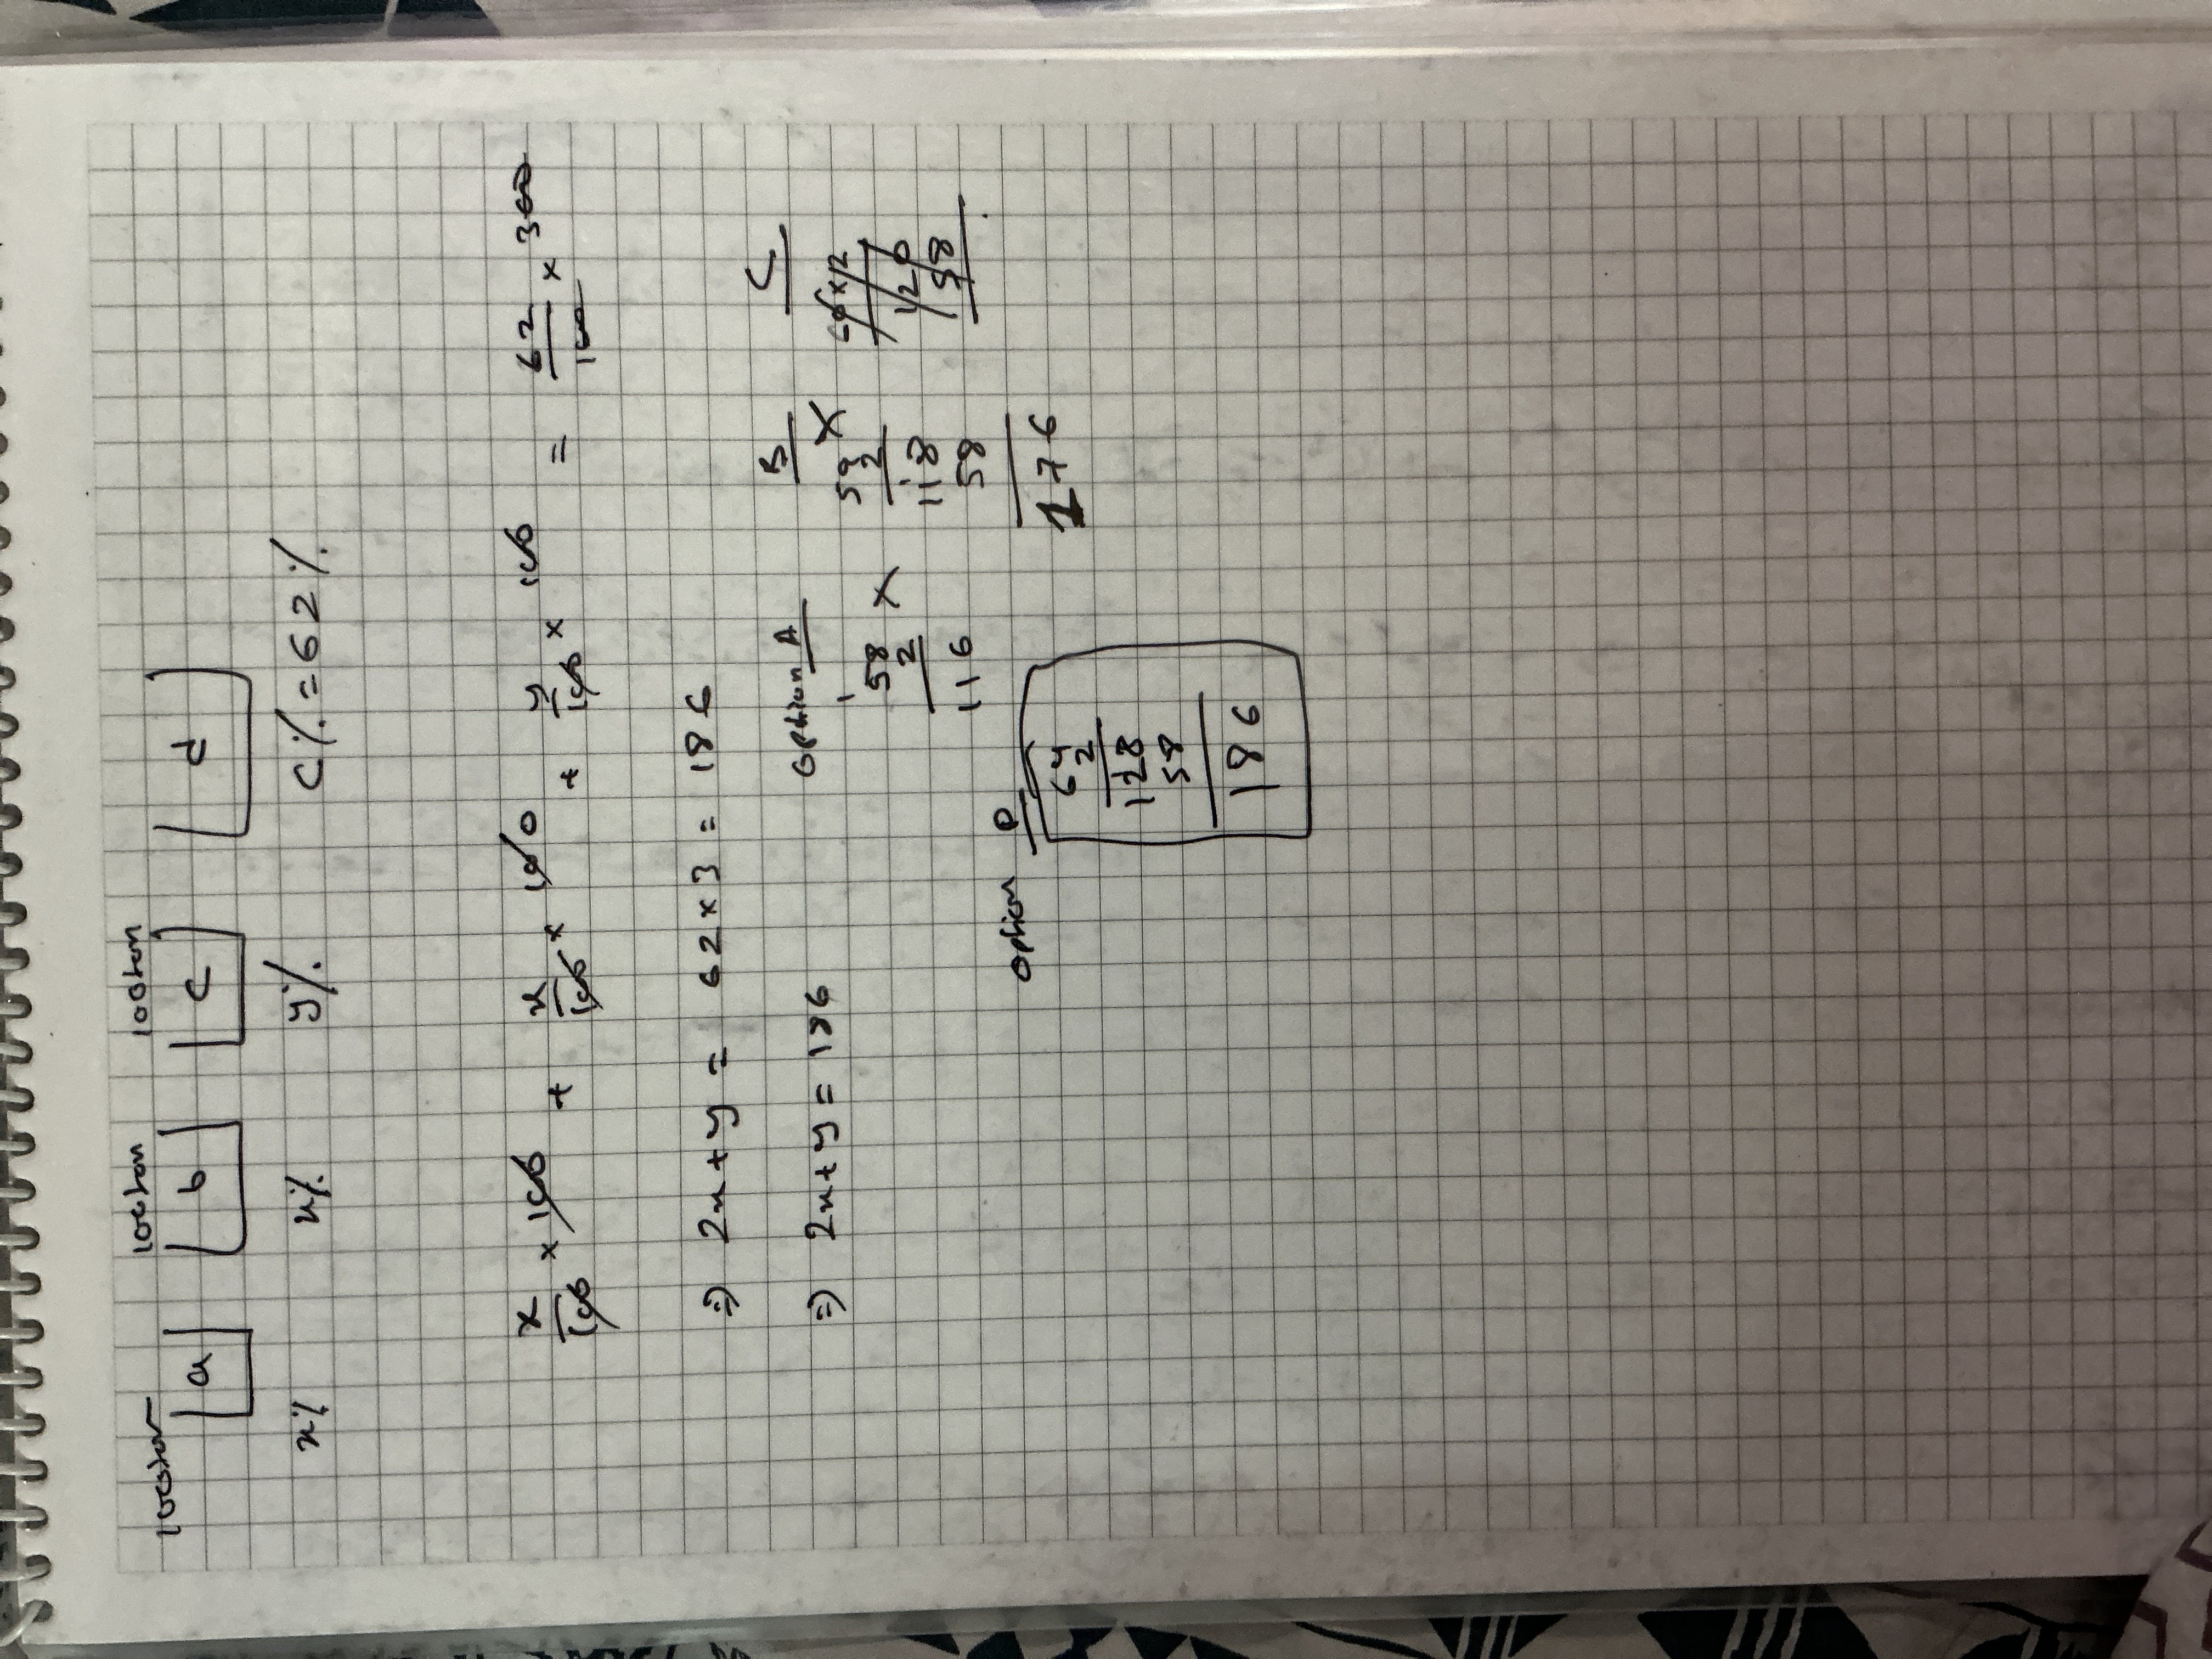 100ton 100ton 100ton
a b c d
x% x% y% C% = 62%
x/100 × 100 + x/100 × 100 + y/100 × 100 = 62/100 × 300
⇒ 2x + y = 62 × 3 = 186
⇒ 2x + y = 186
Option A
58 ×
2
116
B
59 ×
2
118
58
176
C
60 × 2
120
58
Option D
64
2
128
58
186